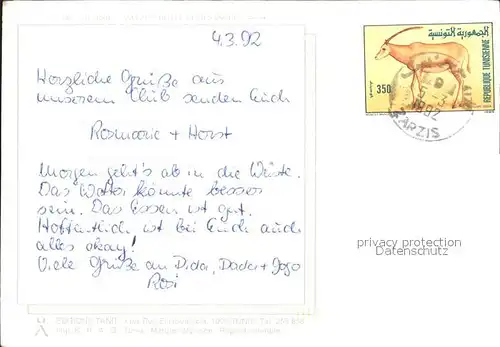 4.3.92
Herzliche Grüße aus
unserem Club senden Euch
Rosmarie + Horst
Morgen geht's ab in die Wüste.
Das Wetter könnte besser
sein. Das Essen ist gut.
Hoffentlich ist bei Euch auch
alles okay!
Viele Grüße an Dida, Dada + Jogo
Rosi
الجمهورية التونسية
REPUBLIQUE TUNISIENNE
350
5-3
1992
ZARZIS
privacy protection
Datenschutz
EDITIONS TANIT